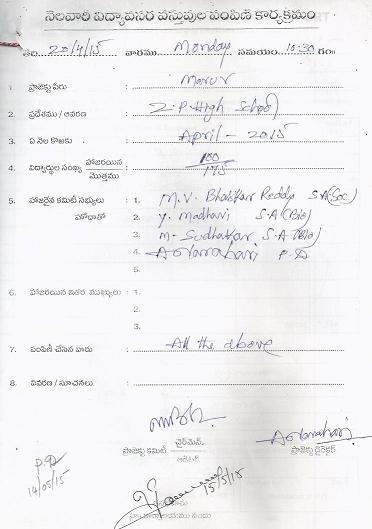 నెలవారి విద్యావసర వస్తువుల పంపిణి కార్యక్రమం
తేది 20/4/15 వారము Monday సమయం 10:30 గం॥
1. ప్రాజెక్టు పేరు : Marur
2. ప్రదేశము / ఆవరణ : Z.P High School
3. ఏ నెల కొరకు : April - 2015
4. విద్యార్థుల సంఖ్య హాజరయిన / మొత్తము : 100 /
5. హాజరైన కమిటీ సభ్యులు : 1. M.V. Bhaskar Reddy S.A (Soc)
హోదాతో 2. Y. Madhavi S.A (Bio)
3. M. Sudhakar S.A (Bio)
4. P.D
6. హాజరయిన ఇతర ముఖ్యులు : 1.
2.
3.
7. పంపిణీ చేసిన వారు : All the above
8. వివరణ / సూచనలు :
ప్రాజెక్టు కమిటీ ఛైర్మెన్,
ప్రాజెక్టు డైరెక్టర్
P.D
14/05/15
15/5/15